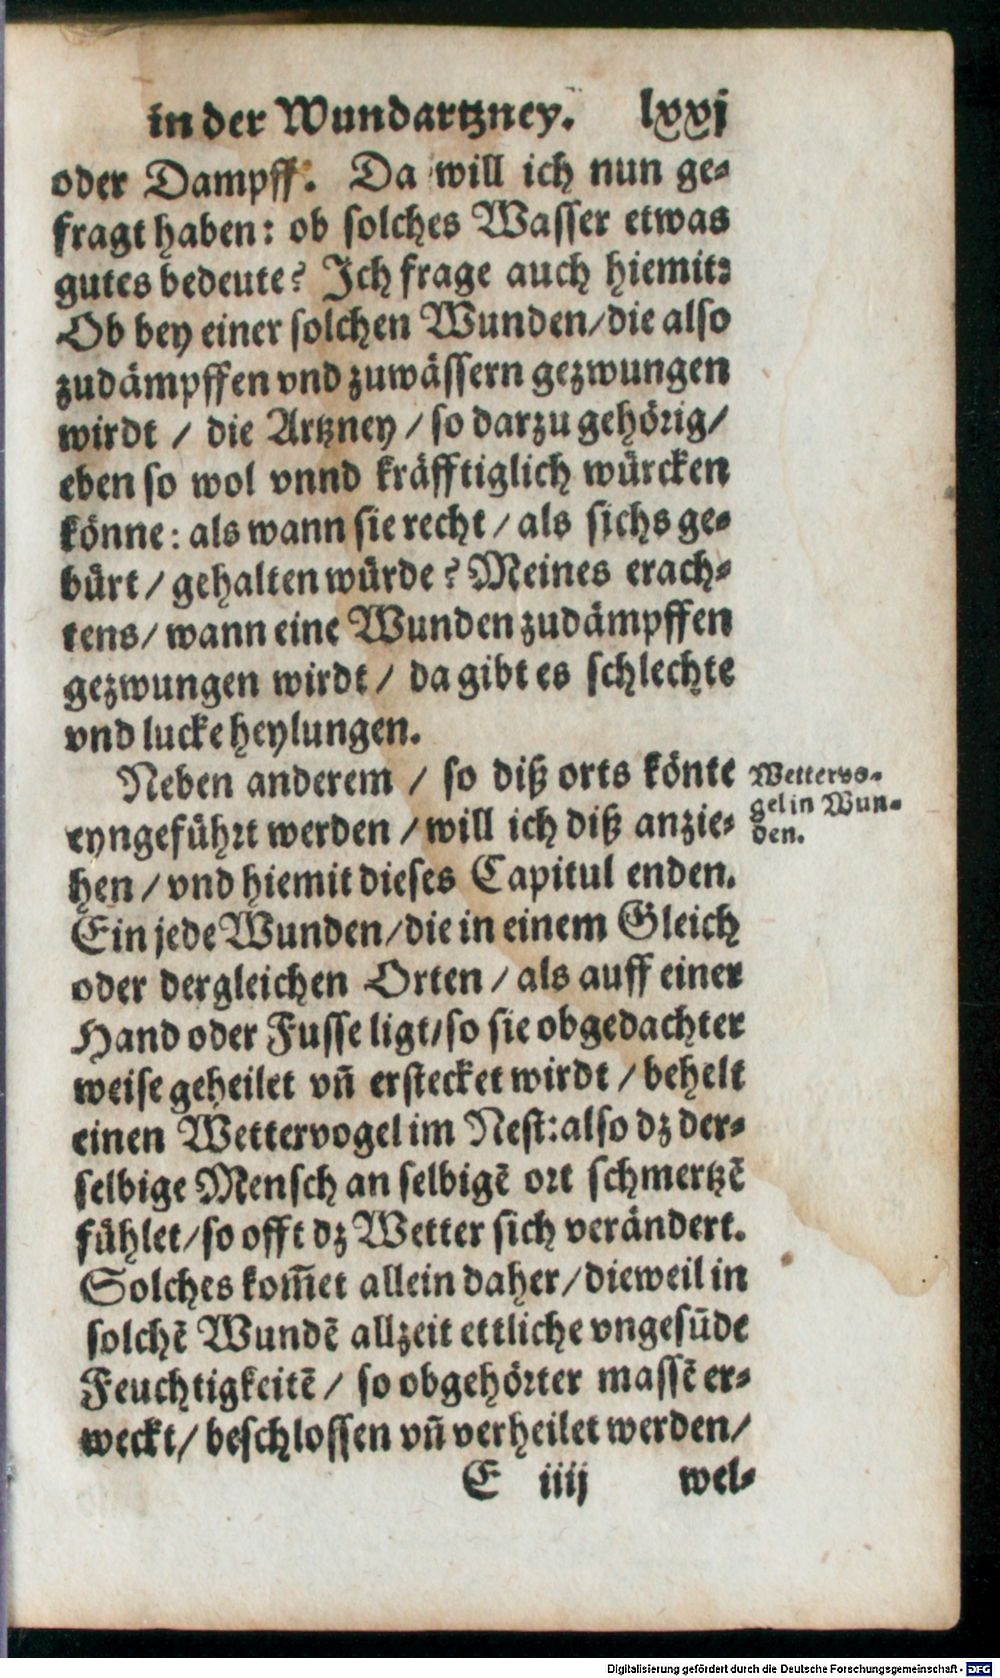 in der Wundartzney. lxxj
oder Dampff. Da will ich nun ge-
fragt haben: ob solches Wasser etwas
gutes bedeute? Ich frage auch hiemit:
Ob bey einer solchen Wunden/die also
zudämpffen vnd zuwässern gezwungen
wirdt / die Artzney / so darzu gehörig/
eben so wol vnnd kräfftiglich würcken
könne: als wann sie recht / als sichs ge-
bürt / gehalten würde? Meines erach-
tens/ wann eine Wunden zudämpffen
gezwungen wirdt / da gibt es schlechte
vnd lucke heylungen.
Neben anderem / so diß orts könte
eyngeführt werden / will ich diß anzie-
hen / vnd hiemit dieses Capitul enden.
Ein jede Wunden/die in einem Gleich
oder dergleichen Orten / als auff einer
Hand oder Fusse ligt/so sie obgedachter
weise geheilet vñ erstecket wirdt / behelt
einen Wettervogel im Nest:also dz der-
selbige Mensch an selbigẽ ort schmertzẽ
fühlet/so offt dz Wetter sich verändert.
Solches kom̃et allein daher/dieweil in
solchẽ Wundẽ allzeit ettliche vngesũde
Feuchtigkeitẽ / so obgehörter massẽ er-
weckt/ beschlossen vñ verheilet werden/
E iiij wel-
Wettervo-
gel in Wun-
den.
Digitalisierung gefördert durch die Deutsche Forschungsgemeinschaft - DFG